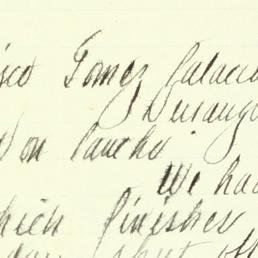 isco Gomez Palacio
Durango
Don Pancho
We had
which finishes
day shut off